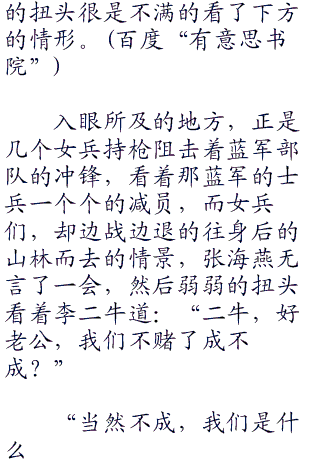 的扭头很是不满的看了下方
的情形。(百度“有意思书
院”)
入眼所及的地方，正是
几个女兵持枪阻击着蓝军部
队的冲锋，看着那蓝军的士
兵一个个的减员，而女兵
们，却边战边退的往身后的
山林而去的情景，张海燕无
言了一会，然后弱弱的扭头
看着李二牛道：“二牛，好
老公，我们不赌了成不
成？”
“当然不成，我们是什
么